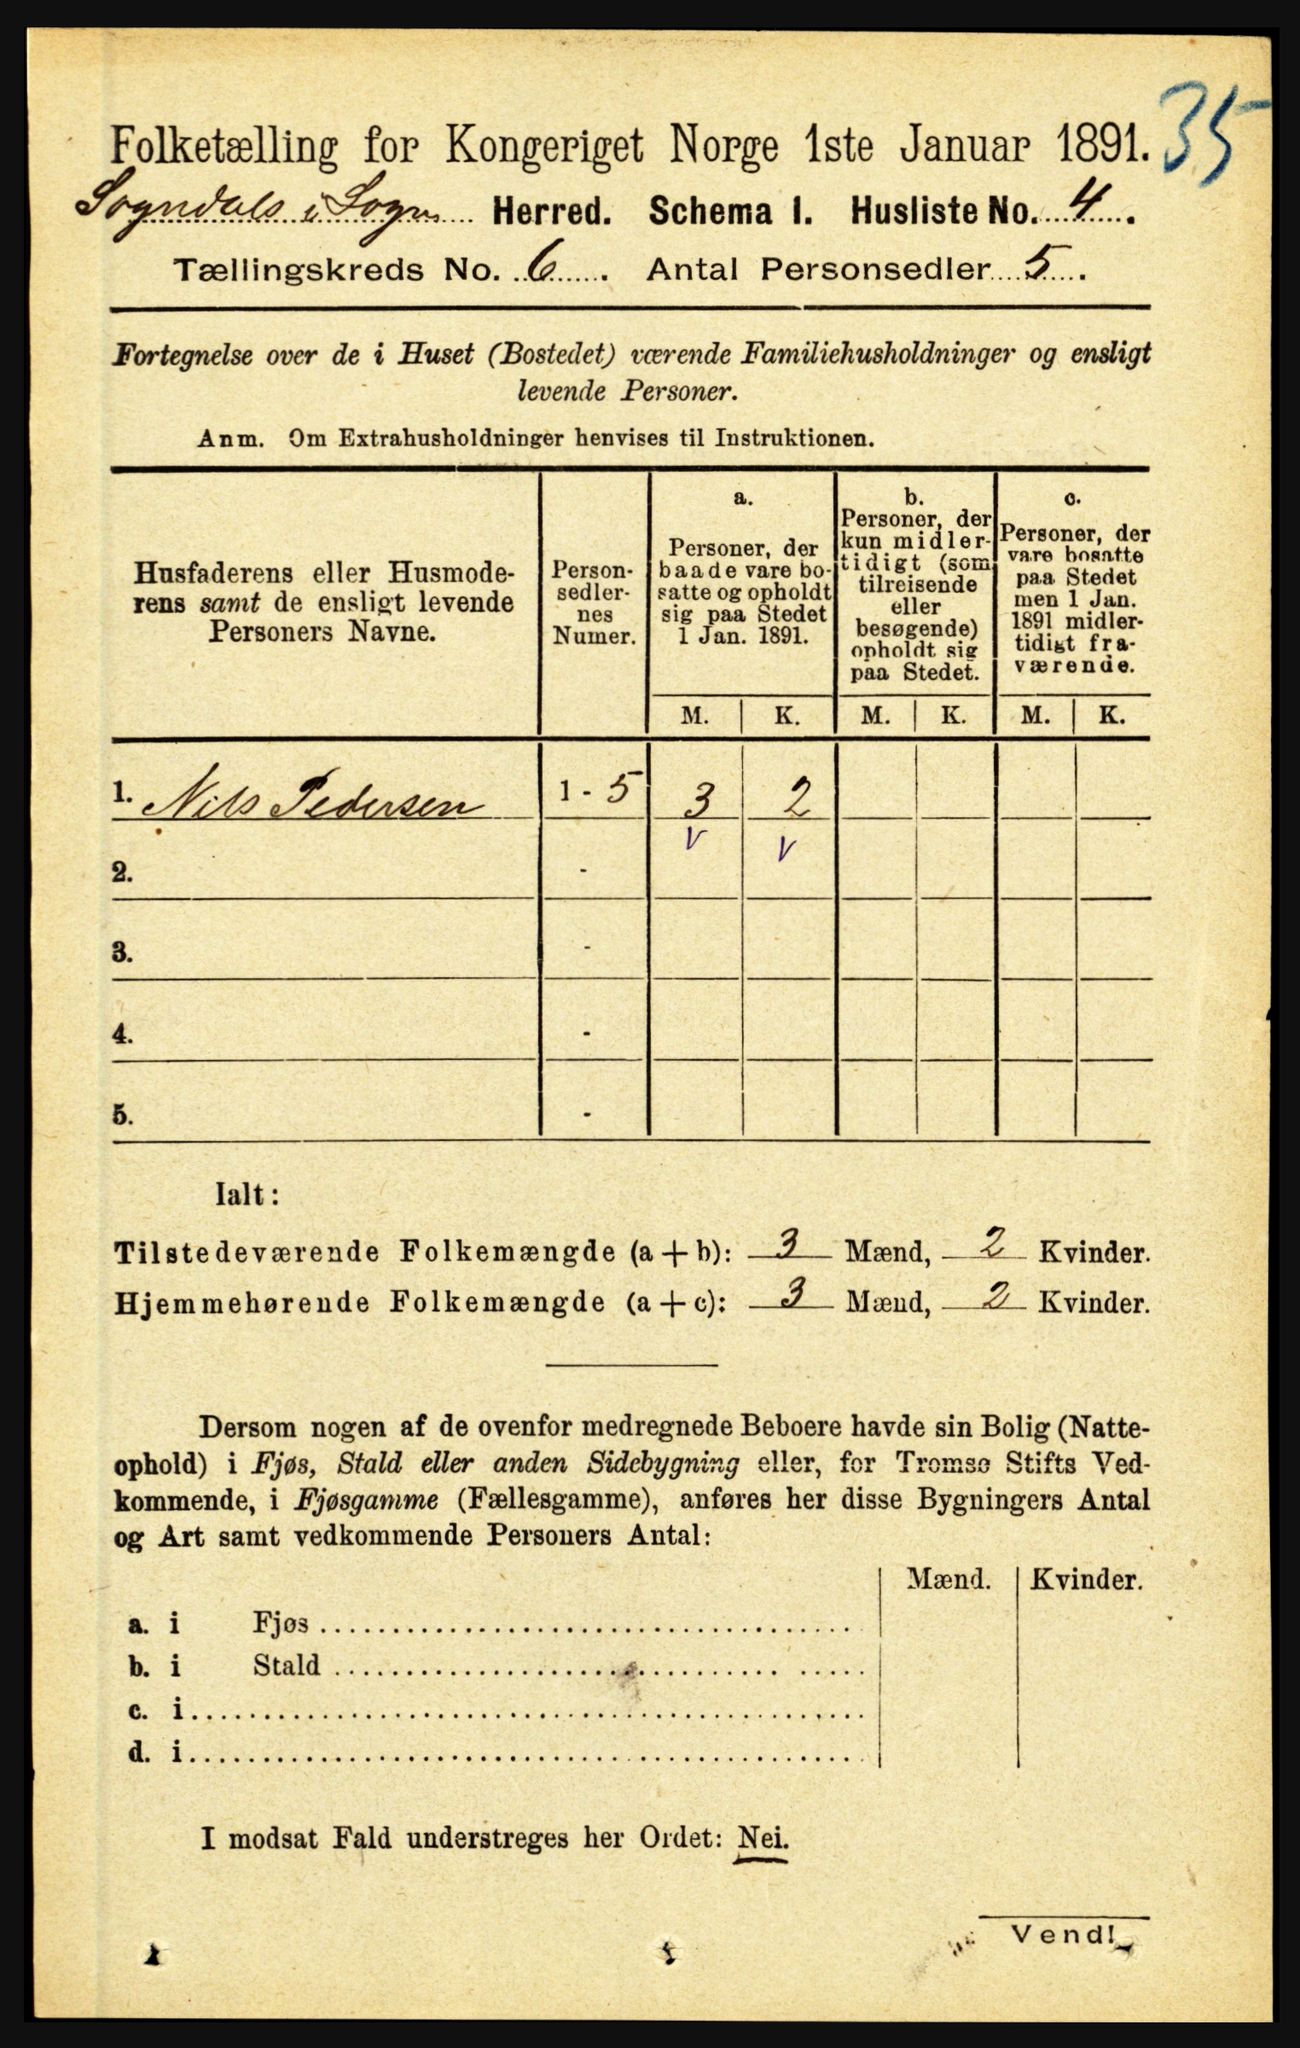 35
Folketælling for Kongeriget Norge 1ste Januar 1891.
Sogndals i Sogn Herred. Schema I. Husliste No. 4.
Tællingskreds No. 6. Antal Personsedler 5.
Fortegnelse over de i Huset (Bostedet) værende Familiehusholdninger og ensligt
levende Personer.
Anm. Om Extrahusholdninger henvises til Instruktionen.
Husfaderens eller Husmode-
rens samt de ensligt levende
Personers Navne.
Person-
sedler-
nes
Numer.
a.
Personer, der
baade vare bo-
satte og opholdt
sig paa Stedet
1 Jan. 1891.
b.
Personer, der
kun midler-
tidigt (som
tilreisende
eller
besøgende)
opholdt sig
paa Stedet.
c.
Personer, der
vare bosatte
paa Stedet
men 1 Jan.
1891 midler-
tidigt fra-
værende.
M. K. M. K. M. K.
1. Nils Pedersen 1 - 5 3 2
v v
2. -
3. -
4. -
5. -
Ialt:
Tilstedeværende Folkemængde (a + b): 3 Mænd, 2 Kvinder.
Hjemmehørende Folkemængde (a + c): 3 Mænd, 2 Kvinder.
Dersom nogen af de ovenfor medregnede Beboere havde sin Bolig (Natte-
ophold) i Fjøs, Stald eller anden Sidebygning eller, for Tromsø Stifts Ved-
kommende, i Fjøsgamme (Fællesgamme), anføres her disse Bygningers Antal
og Art samt vedkommende Personers Antal:
Mænd. Kvinder.
a. i Fjøs
b. i Stald
c. i
d. i
I modsat Fald understreges her Ordet: Nei.
Vend!